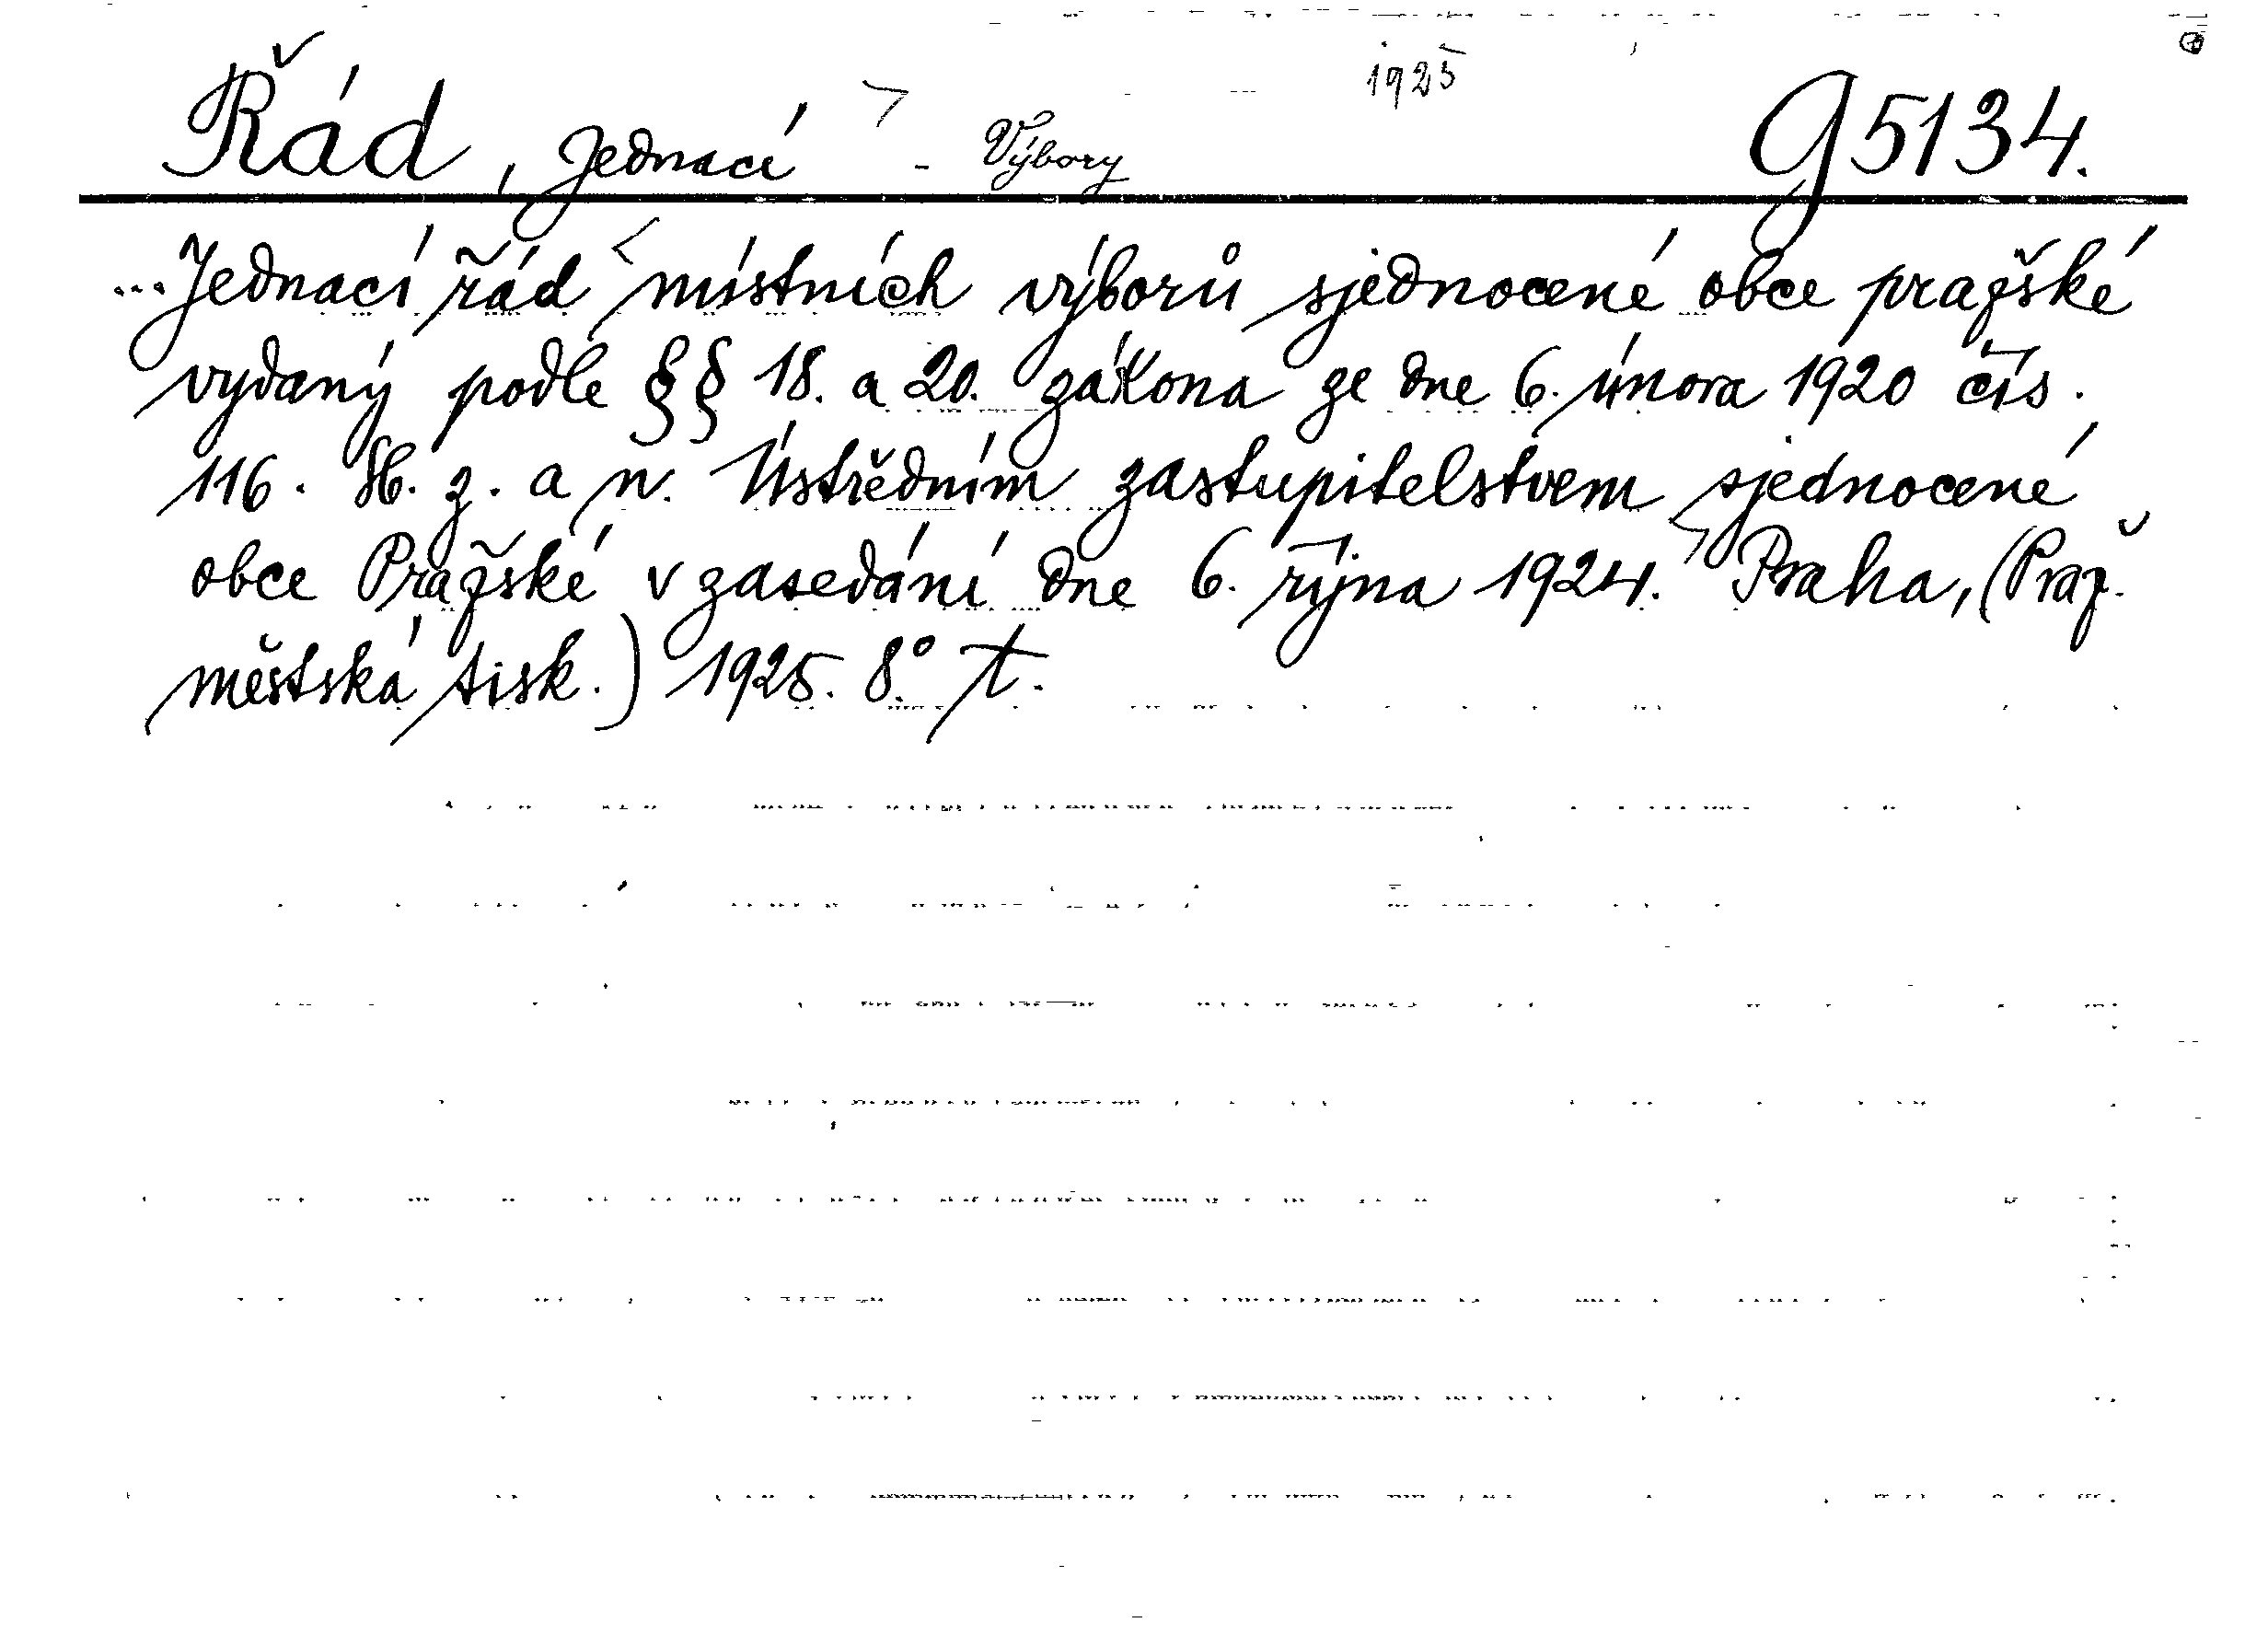 1925
Řád, Jednací - Výbory G5134.
...Jednací řád místních výborů sjednocené obce pražské
vydaný podle §§ 18. a 20. zákona ze dne 6. února 1920 čís.
116. Sb. z. a n. Ústředním zastupitelstvem sjednocené
obce Pražské v zasedání dne 6. října 1924. Praha, (Praž.
městská tisk.) 1925. 8° T.